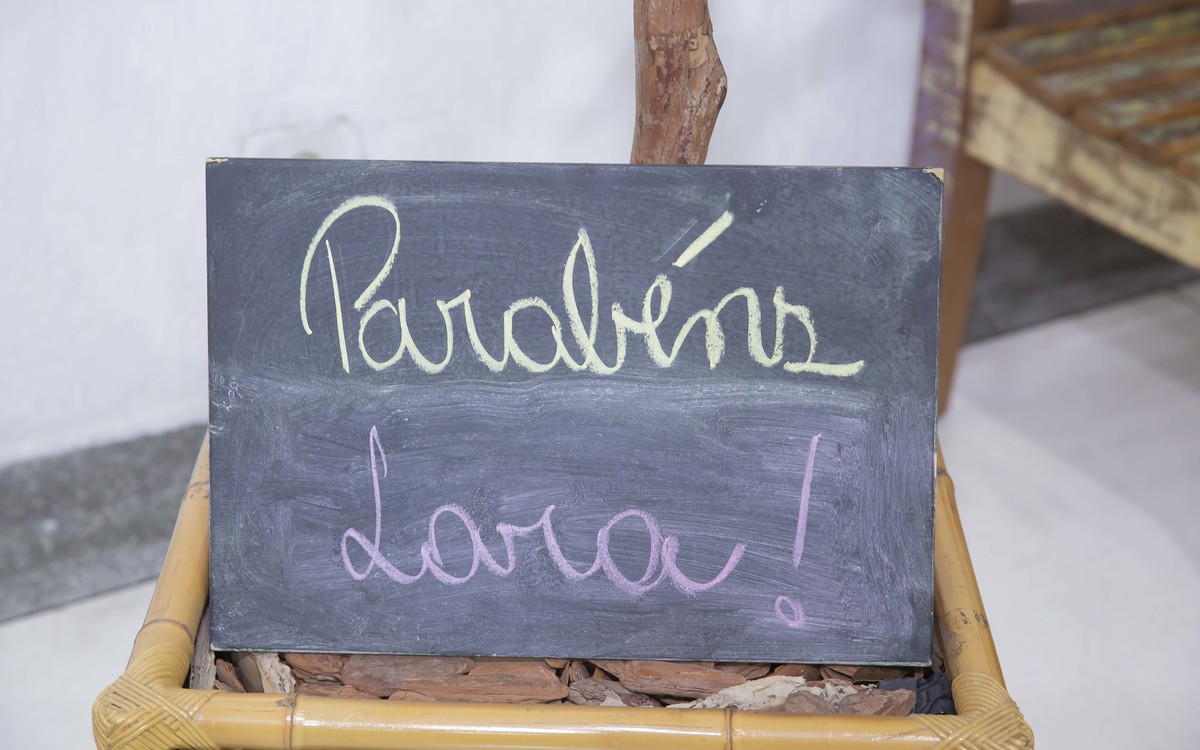 Parabéns
Lara!